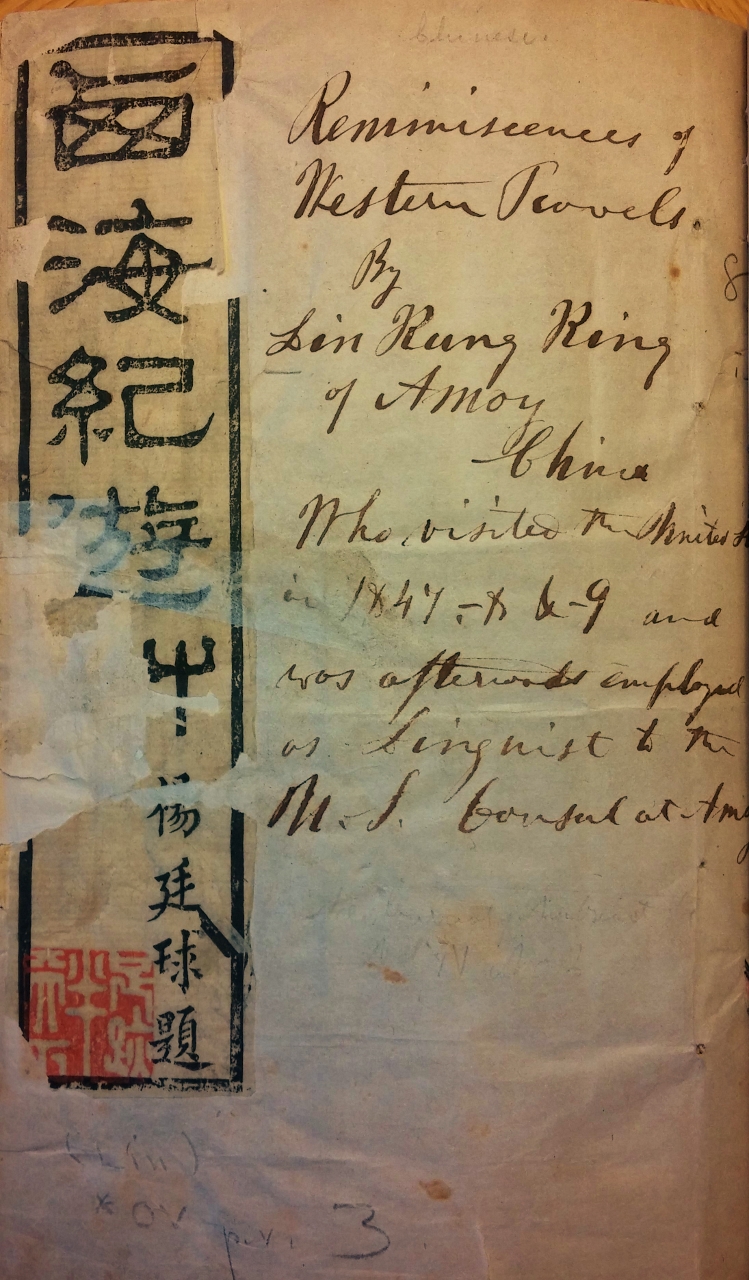 西海紀遊
楊廷球題
Chinese.
Reminiscences of
Western Travels.
By
Lin Kung King
of Amoy
China
Who visited the United
in 1847,-8 &-9 and
was afterwards employed
as Linguist to the
U.S. Consul at Amoy
8
(Lin)
*OV p.v. 3